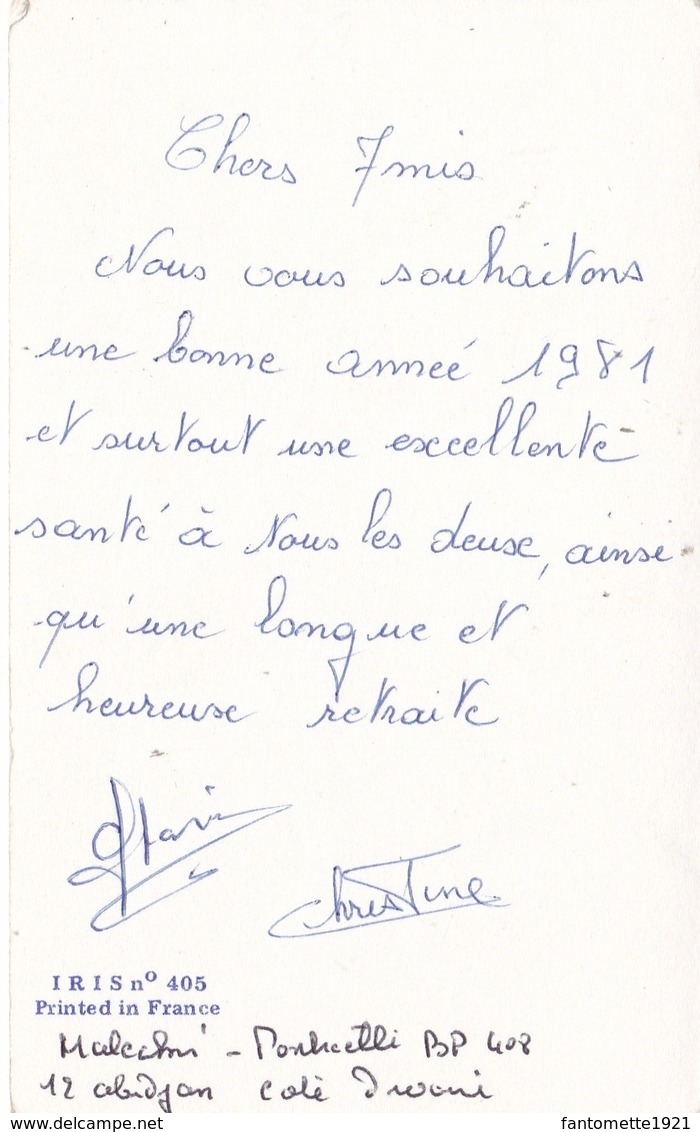 Chers Amis
Nous vous souhaitons
une bonne anneé 1981
et surtout une excellente
santé à Vous les deux, ainsi
qu'une longue et
heureuse retraite
Christine
IRIS nº 405
Printed in France
BP 408
12 abidjan coté Ivoire
delcampe.net
fantomette1921